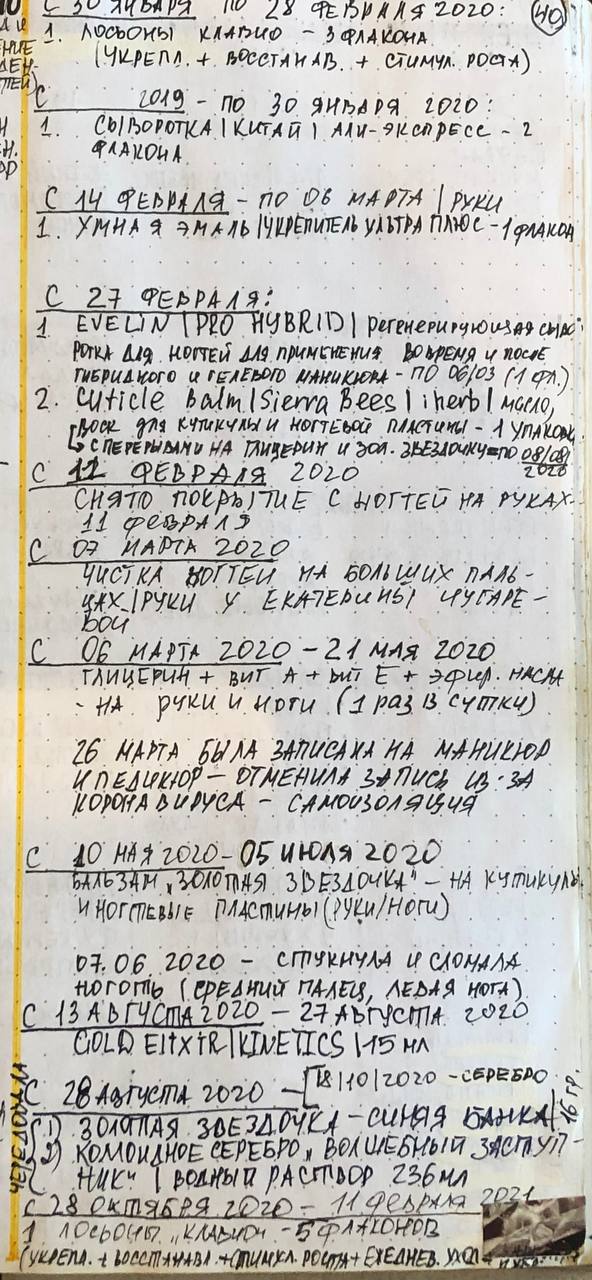 С 30 ЯНВАРЯ ПО 28 ФЕВРАЛЯ 2020: 40
1. ЛОСЬОНЫ КЛАВИО - 3 ФЛАКОНА
(УКРЕПЛ. + ВОССТАНАВ. + СТИМУЛ. РОСТА)
С 2019 - ПО 30 ЯНВАРЯ 2020:
1. СЫВОРОТКА | КИТАЙ | АЛИ-ЭКСПРЕСС - 2
ФЛАКОНА
С 14 ФЕВРАЛЯ - ПО 06 МАРТА | РУКИ
1. УМНАЯ ЭМАЛЬ | УКРЕПИТЕЛЬ УЛЬТРА ПЛЮС - 1 ФЛАКОН
С 27 ФЕВРАЛЯ:
1 EVELIN | PRO HYBRID | РЕГЕНЕРИРУЮЩАЯ СЫВО-
РОТКА ДЛЯ НОГТЕЙ ДЛЯ ПРИМЕНЕНИЯ ВО ВРЕМЯ И ПОСЛЕ
ГИБРИДНОГО И ГЕЛЕВОГО МАНИКЮРА - ПО 06/03 (1 ФЛ.)
2. Cuticle Balm | Sierra Bees | iherb | МАСЛО,
ВОСК ДЛЯ КУТИКУЛЫ И НОГТЕВОЙ ПЛАСТИНЫ - 1 УПАКОВК.
С ПЕРЕРЫВАМИ НА ГЛИЦЕРИН И ЗОЛ. ЗВЕЗДОЧКУ = ПО 08/08/
2020
С 12 ФЕВРАЛЯ 2020
СНЯТО ПОКРЫТИЕ С НОГТЕЙ НА РУКАХ -
11 ФЕВРАЛЯ
С 07 МАРТА 2020
ЧИСТКА НОГТЕЙ НА БОЛЬШИХ ПАЛЬ-
ЦАХ | РУКИ У ЕКАТЕРИНЫ ЧУГАРЕ-
ВОЙ
С 06 МАРТА 2020 - 21 МАЯ 2020
ГЛИЦЕРИН + ВИТ А + ВИТ Е + ЭФИР. МАСЛА
- НА РУКИ И НОГИ (1 РАЗ В СУТКИ)
26 МАРТА БЫЛА ЗАПИСАНА НА МАНИКЮР
И ПЕДИКЮР - ОТМЕНИЛА ЗАПИСЬ ИЗ-ЗА
КОРОНАВИРУСА - САМОИЗОЛЯЦИЯ
С 10 МАЯ 2020 - 05 ИЮЛЯ 2020
БАЛЬЗАМ "ЗОЛОТАЯ ЗВЕЗДОЧКА" - НА КУТИКУЛЫ
И НОГТЕВЫЕ ПЛАСТИНЫ (РУКИ/НОГИ)
07.06 2020 - СТУКНУЛА И СЛОМАЛА
НОГОТЬ (СРЕДНИЙ ПАЛЕЦ, ЛЕВАЯ НОГА)
С 13 АВГУСТА 2020 - 27 АВГУСТА 2020
GOLD ELIXIR | KINETICS | 15 МЛ
С 28 АВГУСТА 2020 - [18|10|2020 - СЕРЕБРО
ЧЕРЕДОВАЛА
1) ЗОЛОТАЯ ЗВЕЗДОЧКА - СИНЯЯ БАНКА | 16 ГР.
2) КОЛЛОИДНОЕ СЕРЕБРО "ВОЛШЕБНЫЙ ЗАСТУП-
НИК" | ВОДНЫЙ РАСТВОР 236 МЛ
С 28 ОКТЯБРЯ 2020 - 11 ФЕВРАЛЯ 2021
1 ЛОСЬОНЫ "КЛАВИО" - 5 ФЛАКОНОВ
(УКРЕПЛ. + ВОССТАНАВЛ. + СТИМУЛ. РОСТА + ЕЖЕДНЕВ. УХОД +